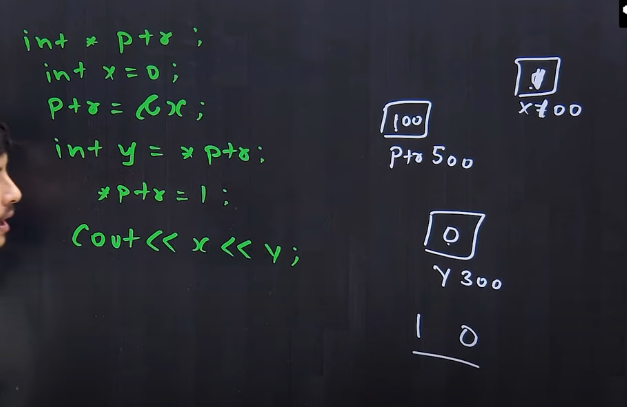 int * ptr ;
int x = 0 ;
ptr = &x ;
int y = *ptr ;
*ptr = 1 ;
Cout << x << y ;
x 100
100
ptr 500
0
y 300
1 0